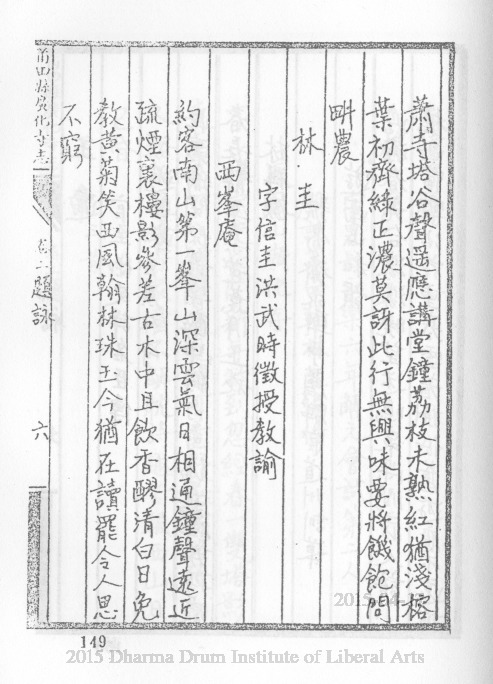 蕭寺塔谷聲遥應講堂鐘荔枝未熟紅猶淺榕
葉初齊綠正濃莫訝此行無興味要將饑飽問
畊農
林圭
字信圭洪武時徵授教諭
西峯庵
約客南山第一峯山深雲氣日相通鐘聲遠近
疏煙裏樓影參差古木中且飲香醪清白日免
教黃菊笑西風翰林珠玉今猶在讀罷令人思
不窮
莆田縣廣化寺志
卷二題詠
六
149
2015 Dharma Drum Institute of Liberal Arts